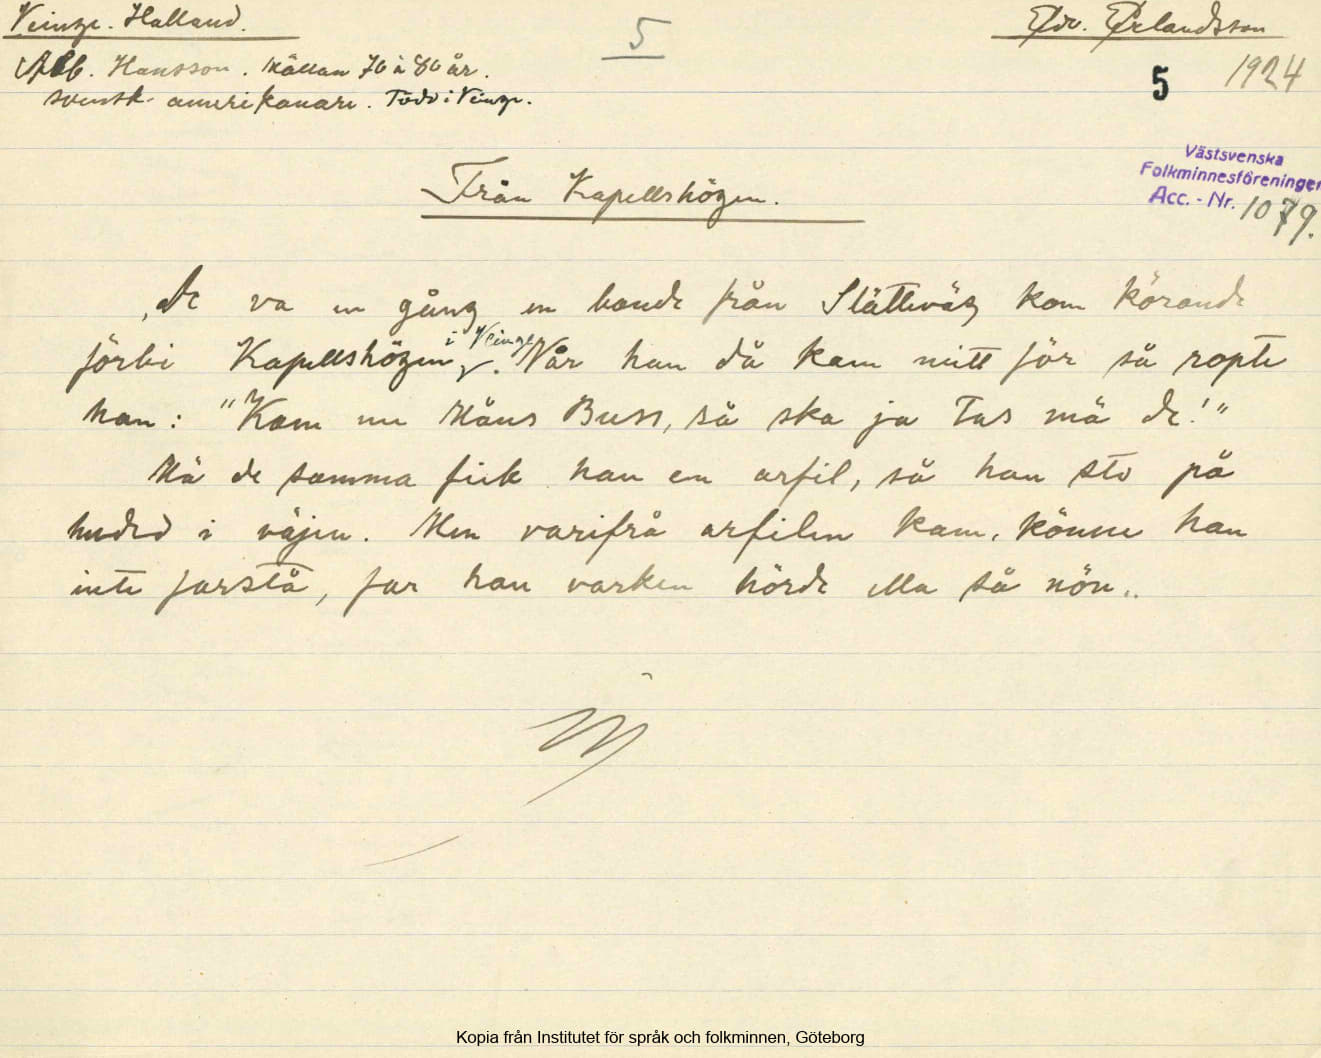 Veinge. Halland.
5
Edv. Erlandsson
Alb. Hansson. Mällan 70 à 80 år.
5
1924
svensk-amerikanare. Född i Veinge.
Västsvenska
Folkminnesföreningen
Acc. - Nr. 1079.
Från Kapellshögen.
De va en gång en bonde från Slättväg kom körande
förbi Kapellshögen i Veinge. Når han då kam mitt för så ropte
han: "Kom nu Måns Buss, så ska ja tas mä de!"
Mä de samma fick han en arfil, så han sto på
huded i väjen. Men varifrå arfilen kam, könne han
inte farstå, far han varken hörde ella så nön..
Kopia från Institutet för språk och folkminnen, Göteborg